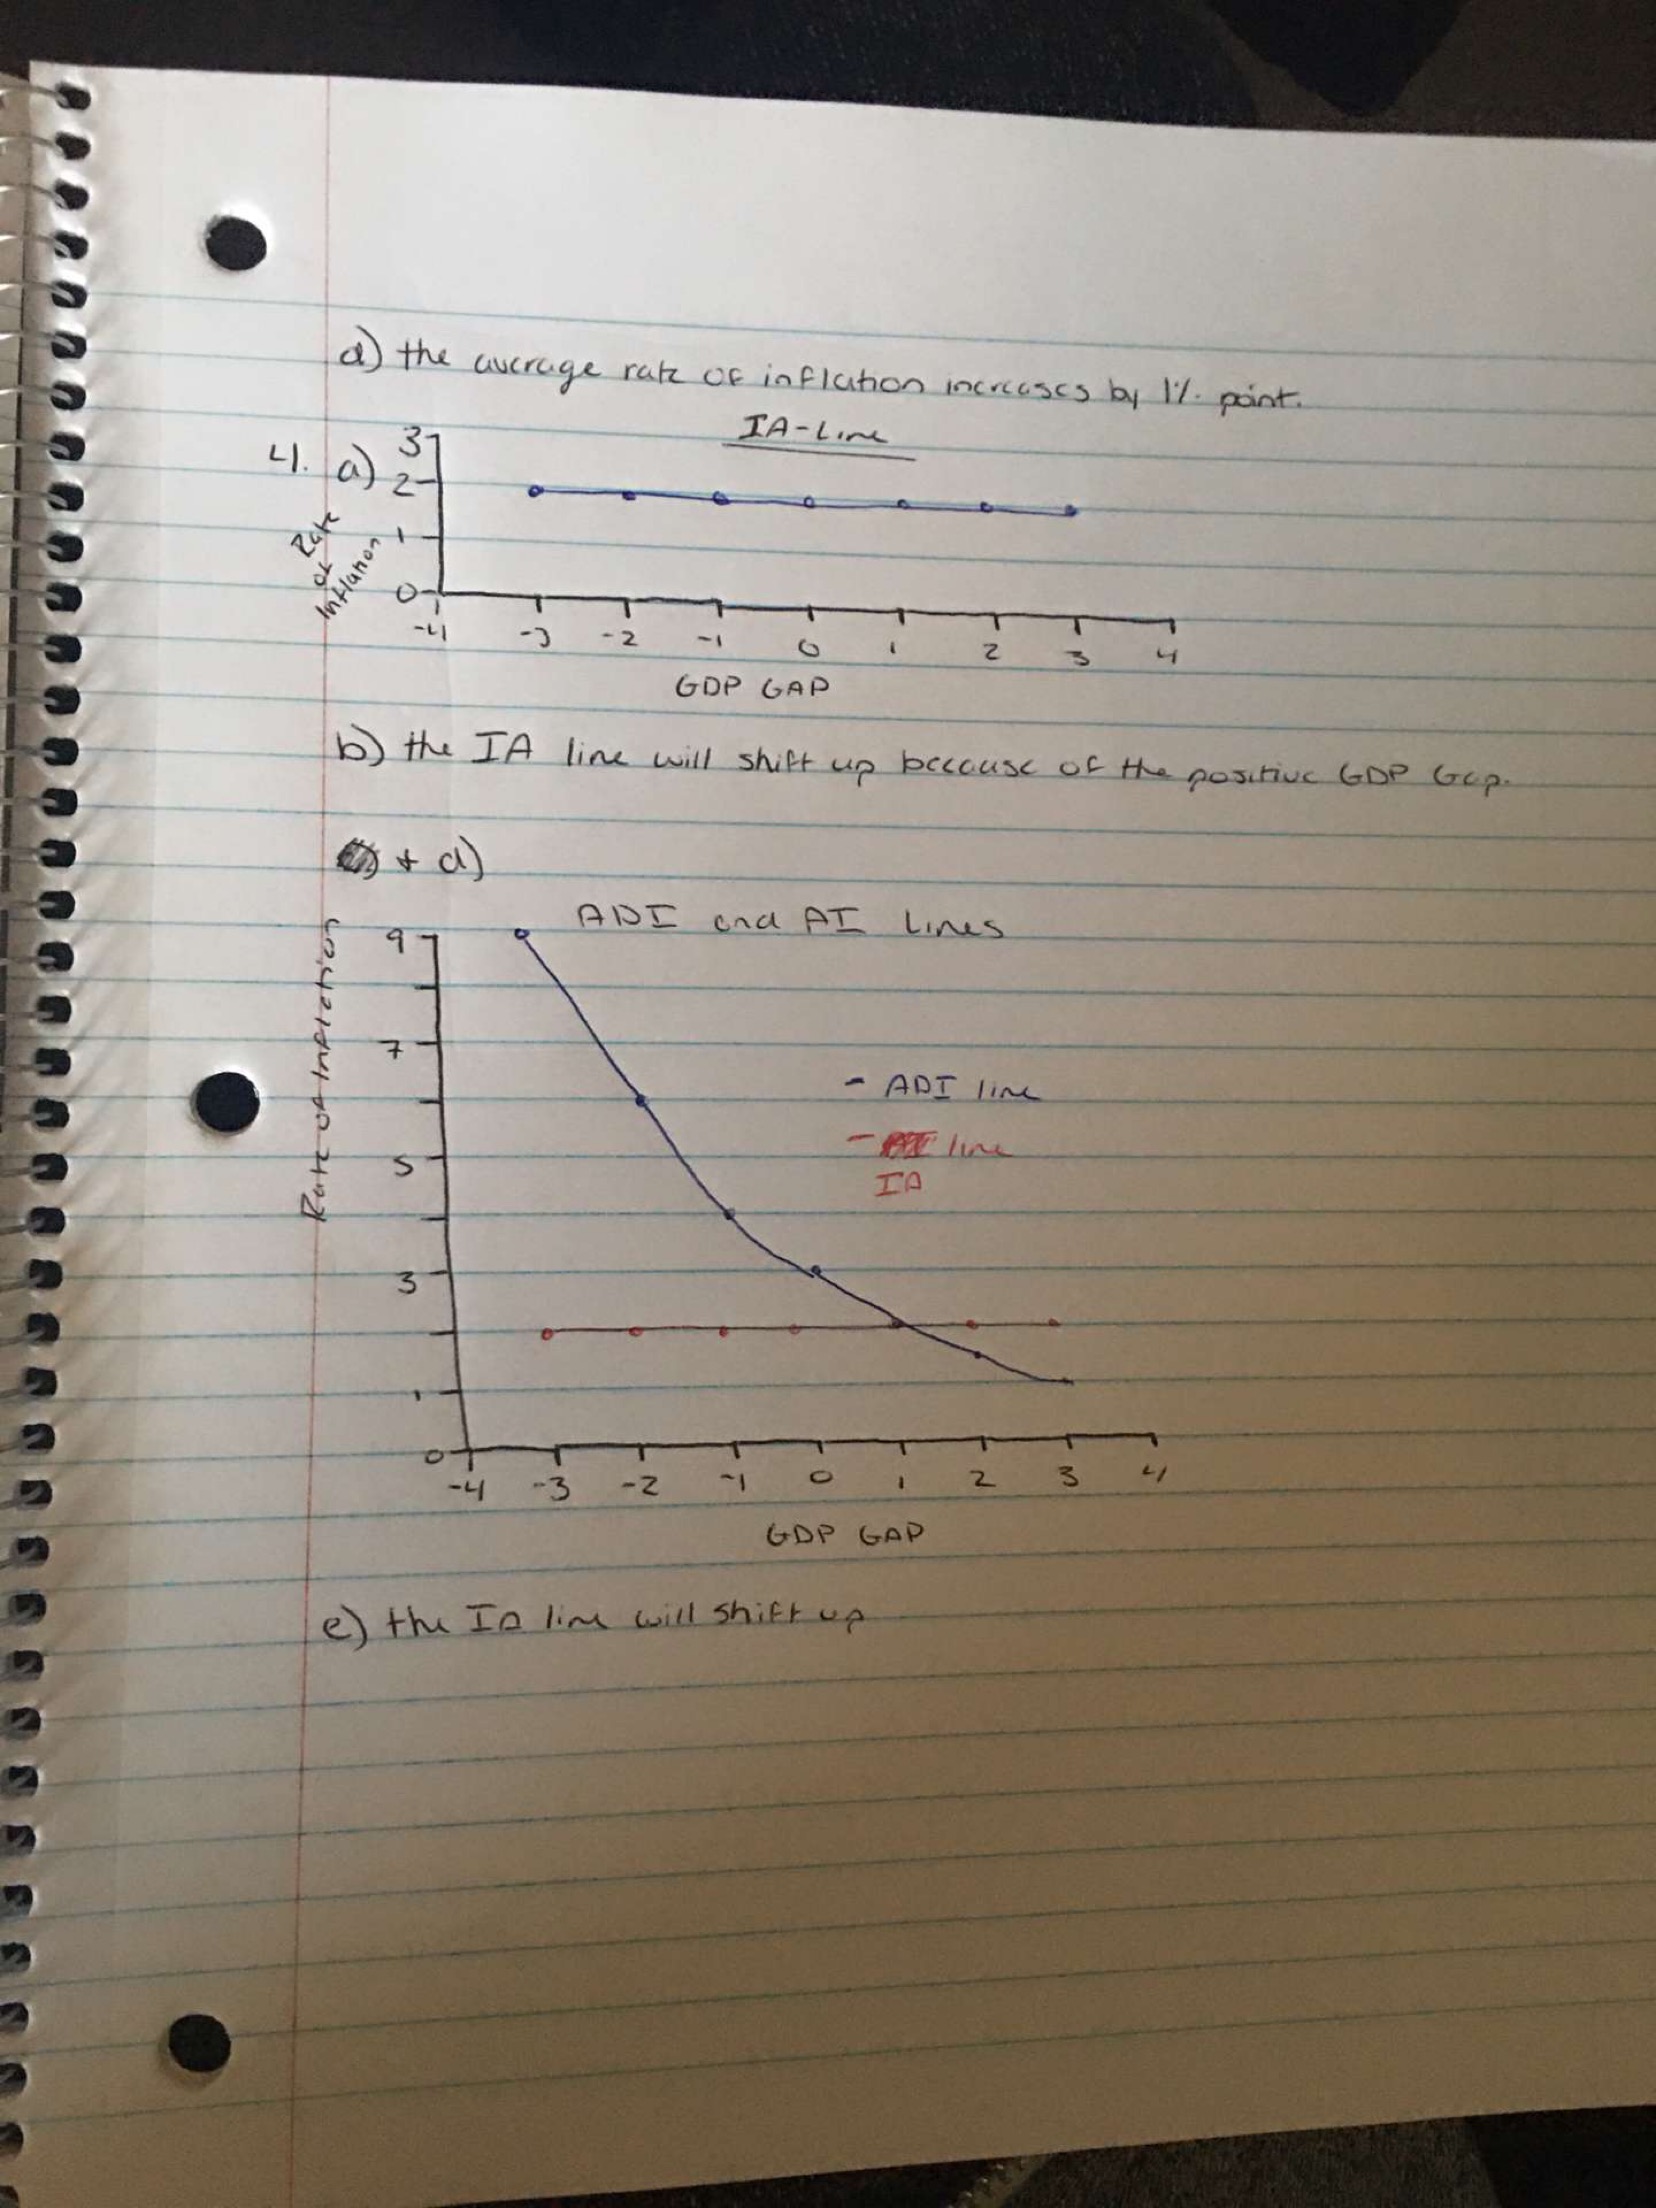 d) the average rate of inflation increases by 1% point.
IA-Line
4. a)
3
2
1
0
Rate
of
Inflation
-4 -3 -2 -1 0 1 2 3 4
GDP GAP
b) the IA line will shift up because of the positive GDP Gap.
+ d)
ADI and AI Lines
9
7
5
3
1
0
Rate of Inflation
- ADI line
- line
IA
-4 -3 -2 -1 0 1 2 3 4
GDP GAP
e) the IA line will shift up